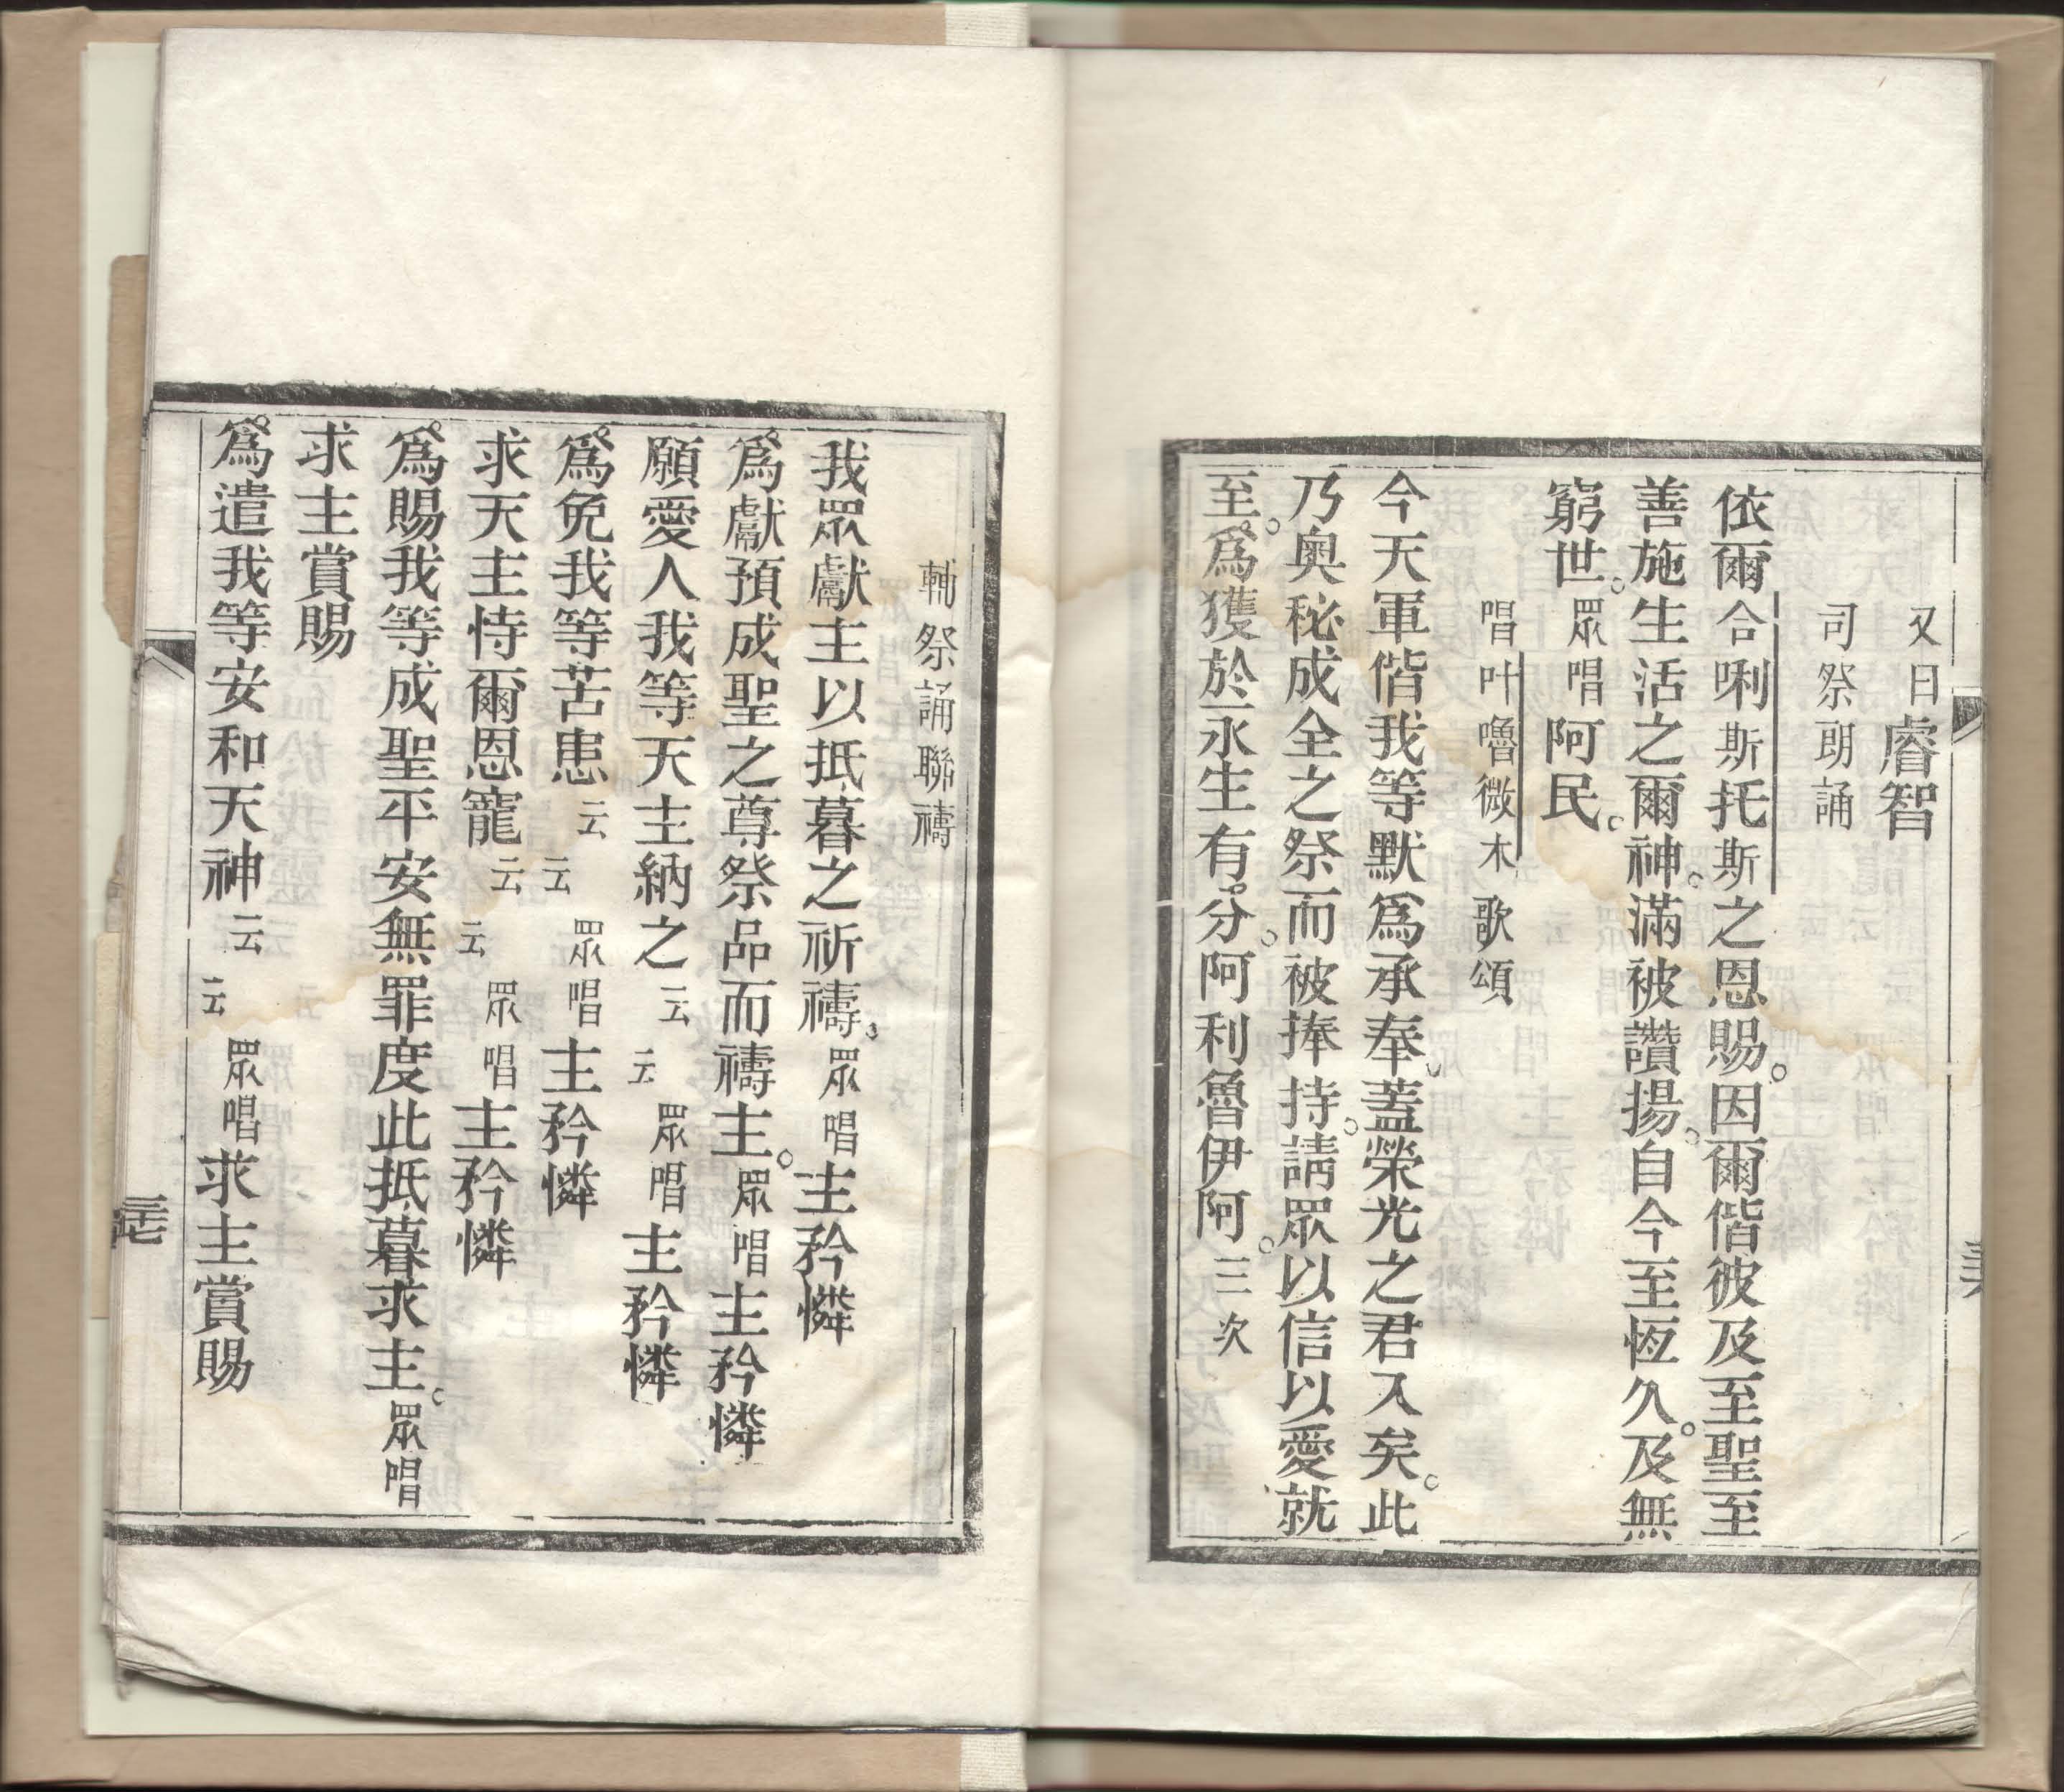 又曰睿智
司祭朗誦
依爾合唎斯托斯之恩賜。因爾偕彼及至聖至
善施生活之爾神。滿被讚揚。自今至恆久。及無
窮世。眾唱阿民。
唱叶嚕微木歌頌
今天軍偕我等默爲承奉。蓋榮光之君入矣。此
乃奧秘成全之祭而被捧持。請眾以信以愛就
至。爲獲於永生有分。阿利魯伊阿。三次
輔祭誦聯禱
我眾獻主以抵暮之祈禱。眾唱主矜憐
爲獻預成聖之尊祭品而禱主。眾唱主矜憐
願愛人我等天主納之云云眾唱主矜憐
爲免我等苦患云云眾唱主矜憐
求天主恃爾恩寵云云眾唱主矜憐
爲賜我等成聖平安無罪度此抵暮求主。眾唱
求主賞賜
爲遣我等安和天神云云眾唱求主賞賜